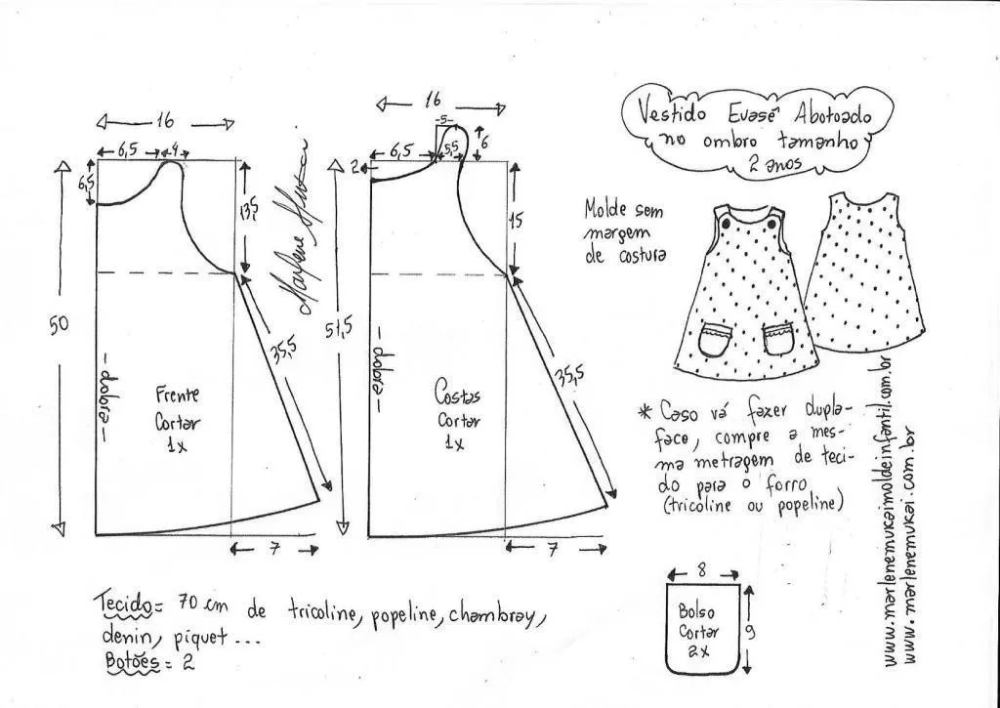 Vestido Evasê Abotoado
no ombro tamanho
2 anos
16
6,5
4
6,5
13,5
50
35,5
dobra
Frente
Cortar
1x
7
Marlene Mukai
16
5
6,5
5,5
6
2
15
51,5
35,5
dobra
Costas
Cortar
1x
7
Molde sem
margem
de costura
* Caso vá fazer dupla-
face, compre a mes-
ma metragem de teci-
do para o forro
(tricoline ou popeline)
8
Bolso
Cortar
2x
9
Tecido= 70 cm de tricoline, popeline, chambray,
denin, píquet...
Botões= 2
www.marlenemukaimoldeinfantil.com.br
www.marlenemukai.com.br